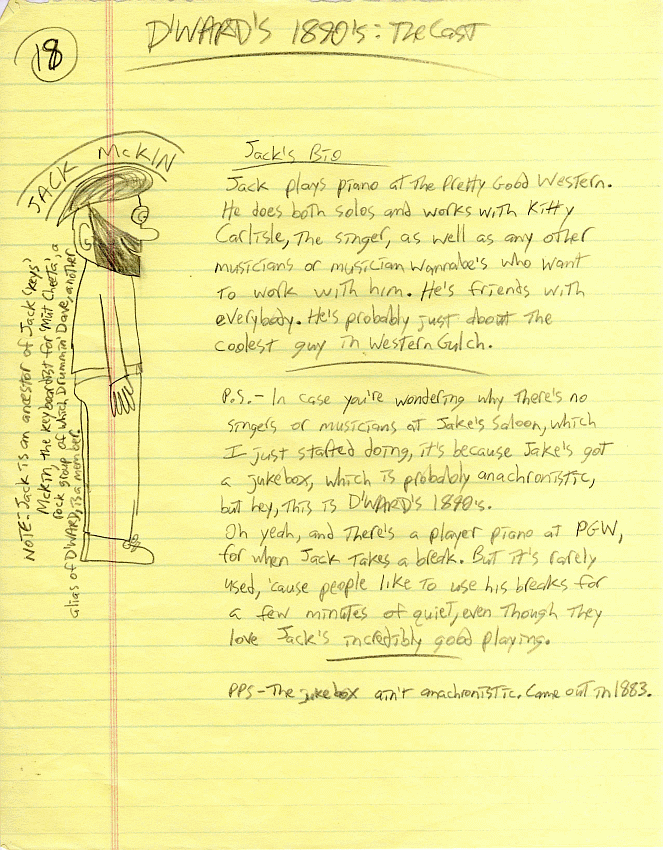 18
D'WARD'S 1890's: The Cast
JACK McKIN
NOTE: Jack is an ancestor of Jack (Keys)
McKin, the keyboardist for 'Mut Cheeta', a
rock group of which Drummin' Dave, another
alias of D'WARD, is a member.
Jack's Bio
Jack plays piano at the Pretty Good Western.
He does both solos and works with Kitty
Carlisle, the singer, as well as any other
musicians or musician wannabe's who want
to work with him. He's friends with
everybody. He's probably just about the
coolest guy in Western Gulch.
P.S.- In case you're wondering why there's no
singers or musicians at Jake's Saloon, which
I just started doing, it's because Jake's got
a jukebox, which is probably anachronistic,
but hey, this is D'WARD'S 1890's.
Oh yeah, and there's a player piano at PGW,
for when Jack takes a break. But it's rarely
used, 'cause people like to use his breaks for
a few minutes of quiet, even though they
love Jack's incredibly good playing.
PPS - The jukebox ain't anachronistic. Came out in 1883.